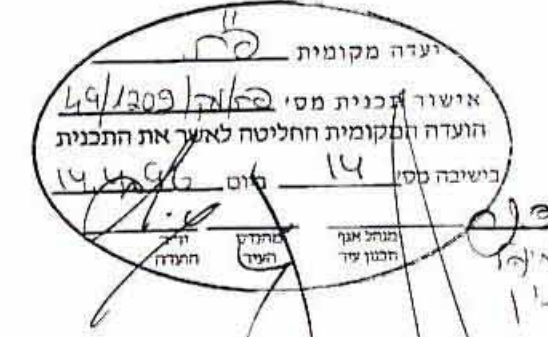 ועדה מקומית פ"ת
אישור תכנית מס' פת/מק/1209/49
הועדה המקומית החליטה לאשר את התכנית
בישיבה מס' 14 מיום 14.4.96
מנהל אגף מהנדס יו"ר
תכנון עיר העיר הועדה